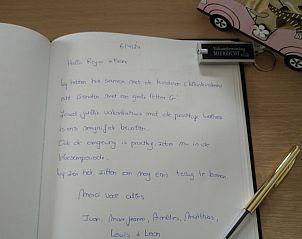 6/4/21
Hallo Roger + Rianne
Wij hebben hier samen met de kinderen & kleinkinderen
echt Genoten met een grote letter G.
Zowel jullie vakantiehuis met de prachtige tuin
is ons magnifiek bevallen.
Ook de omgeving is prachtig zeker nu in de
bloesemperiode.
Wij zien het zitten om nog eens terug te komen.
Merci voor alles
Juan, Marjeanne, Annelies, Matthias,
Louis & Leon
Vakantiewoning